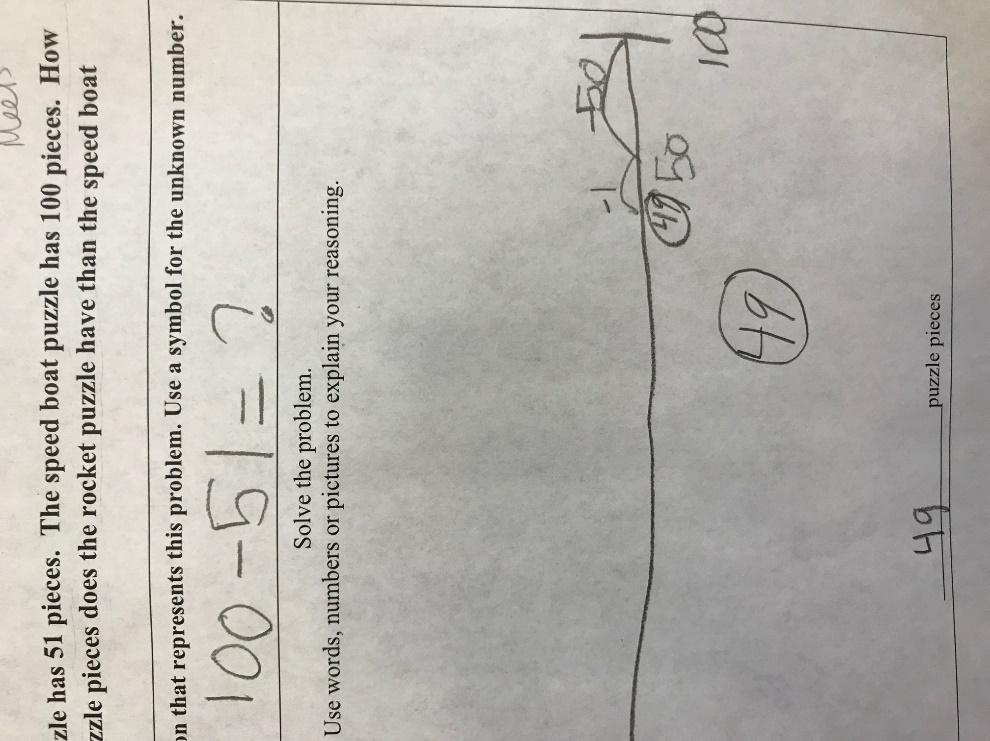 Meets
zle has 51 pieces. The speed boat puzzle has 100 pieces. How
zzle pieces does the rocket puzzle have than the speed boat
on that represents this problem. Use a symbol for the unknown number.
100 - 51 = ?
Solve the problem.
Use words, numbers or pictures to explain your reasoning.
-1 -50
49 50 100
49
49 puzzle pieces